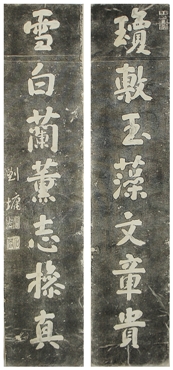 瓊敷玉藻文章貴
雪白蘭薰志操真
劉墉